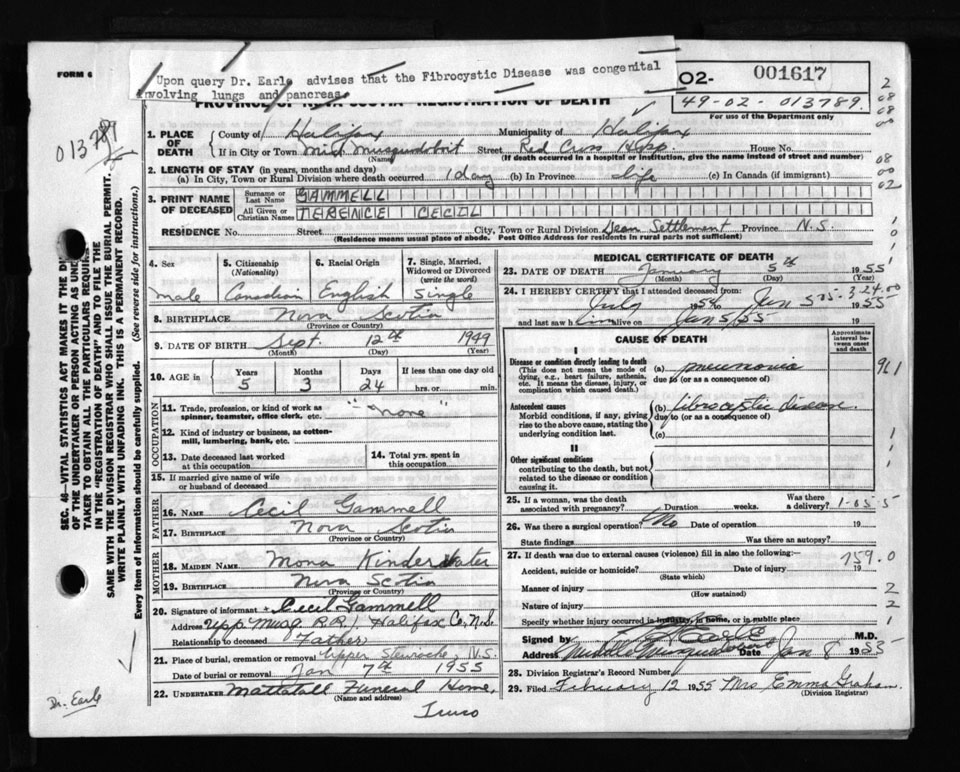 FORM 6
Upon query Dr. Earle advises that the Fibrocystic Disease was congenital
involving lungs and pancreas.
02- 001617
49-02-013789.
For use of Department only
PROVINCE OF NOVA SCOTIA REGISTRATION OF DEATH
013789
1. PLACE OF DEATH
County of Halifax Municipality of Halifax
If in City or Town Mid Musquodoboit Street Red Cross Hosp. House No.
(Name) (If death occurred in a hospital or institution, give the name instead of street and number)
2. LENGTH OF STAY (in years, months and days)
(a) In City, Town or Rural Division where death occurred 1 day (b) In Province Life (c) In Canada (if immigrant)
3. PRINT NAME OF DECEASED
Surname or Last Name GAMMELL
All Given or Christian Names TERENCE CECIL
RESIDENCE No. Street City, Town or Rural Division Dean Settlement Province N.S.
(Residence means usual place of abode. Post Office Address for residents in rural parts not sufficient)
4. Sex male
5. Citizenship (Nationality) Canadian
6. Racial Origin English
7. Single, Married, Widowed or Divorced (write the word) Single
8. BIRTHPLACE Nova Scotia
(Province or Country)
9. DATE OF BIRTH Sept. 12th 1949
(Month) (Day) (Year)
10. AGE in Years 5 Months 3 Days 24 If less than one day old hrs. or min.
OCCUPATION
11. Trade, profession, or kind of work as spinner, teamster, office clerk, etc. "-none"
12. Kind of industry or business, as cotton-mill, lumbering, bank, etc.
13. Date deceased last worked at this occupation
14. Total yrs. spent in this occupation
15. If married give name of wife or husband of deceased
FATHER
16. NAME Cecil Gammell
17. BIRTHPLACE Nova Scotia
(Province or Country)
MOTHER
18. MAIDEN NAME Mona Kinder
19. BIRTHPLACE Nova Scotia
(Province or Country)
20. Signature of informant + Cecil Gammell
Address Upp Musq R.R.1, Halifax Co, N.S.
Relationship to deceased Father
21. Place of burial, cremation or removal Upper N.S.
Date of burial or removal Jan 7th 1955
22. UNDERTAKER Mattatall Funeral Home,
(Name and address)
Truro
MEDICAL CERTIFICATE OF DEATH
23. DATE OF DEATH January 5th 1955
(Month) (Day) (Year)
24. I HEREBY CERTIFY that I attended deceased from:
July 1954 to Jan 5 1955
and last saw him alive on Jan 5/55 19
CAUSE OF DEATH
Approximate interval between onset and death
I
Disease or condition directly leading to death
(This does not mean the mode of dying, e.g., heart failure, asthenia, etc. It means the disease, injury, or complication which caused death.)
(a) pneumonia
due to (or as a consequence of)
Antecedent causes
Morbid conditions, if any, giving rise to the above cause, stating the underlying condition last.
(b) fibrocystic disease
due to (or as a consequence of)
(c)
II
Other significant conditions
contributing to the death, but not related to the disease or condition causing it.
25. If a woman, was the death associated with pregnancy? Duration weeks. Was there a delivery?
26. Was there a surgical operation? No Date of operation 19
State findings Was there an autopsy?
27. If death was due to external causes (violence) fill in also the following:—
Accident, suicide or homicide? Date of injury 19
(State which)
Manner of injury
(How sustained)
Nature of injury
Specify whether injury occurred in industry, in home, or in public place
Signed by Earle M.D.
Address Middle Musquodoboit Date Jan 8 1955
28. Division Registrar's Record Number
29. Filed February 12 1955 Mrs Emma Graham.
(Division Registrar)
759.0
SEC. 46—VITAL STATISTICS ACT MAKES IT THE DUTY
OF THE UNDERTAKER OR PERSON ACTING AS UNDER-
TAKER TO OBTAIN ALL THE PARTICULARS REQUIRED
IN THE "REGISTRATION OF DEATH" AND TO FILE THE
SAME WITH THE DIVISION REGISTRAR WHO SHALL ISSUE THE BURIAL PERMIT.
WRITE PLAINLY WITH UNFADING INK. THIS IS A PERMANENT RECORD.
Every item of information should be carefully supplied. (See reverse side for instructions.)
Dr. Earle